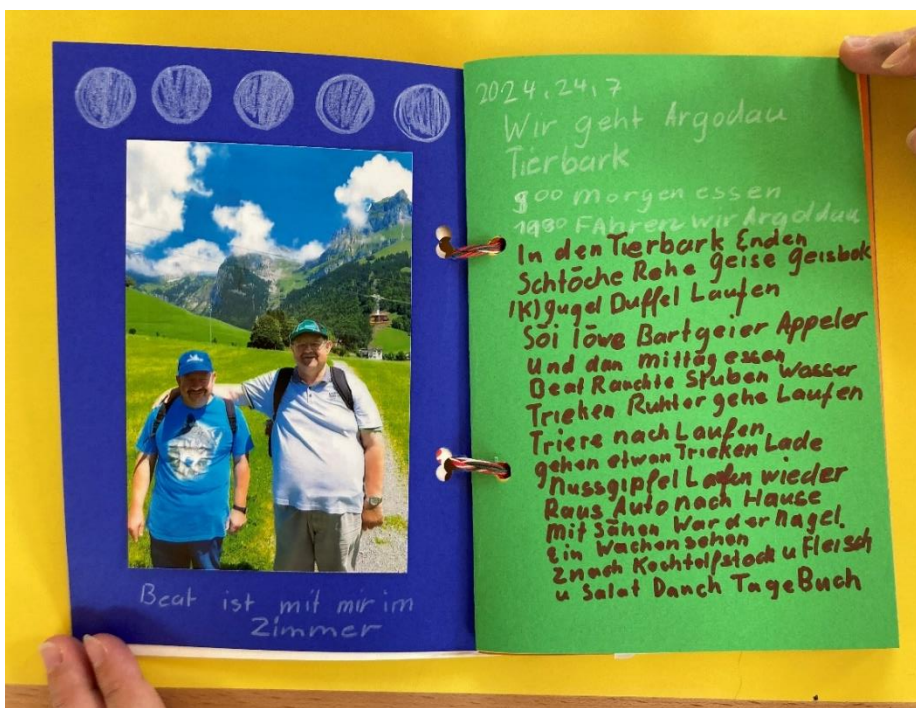 Beat ist mit mir im
Zimmer
2024, 24, 7
Wir geht Argodau
Tierbark
900 morgen essen
1980 FAhren wir Argoldau
In den Tierbark Enden
Schtöche Rehe geise geisbok
(K)gugel Duffel Laufen
Söi löwe Bartgeier Appeler
und dan mittag essen
Beat Rauchte Stuben Wasser
Trieken Ruhtor gehe Laufen
Triere nach Laufen
gehen etwan Trieken Lade
Nussgipfel Laufen wieder
Raus Auto nach Hause
mit Sähen War der Nagel.
Ein Wachen sehen
Znach Kochtolfstock u Fleisch
u Salat Danch TageBuch